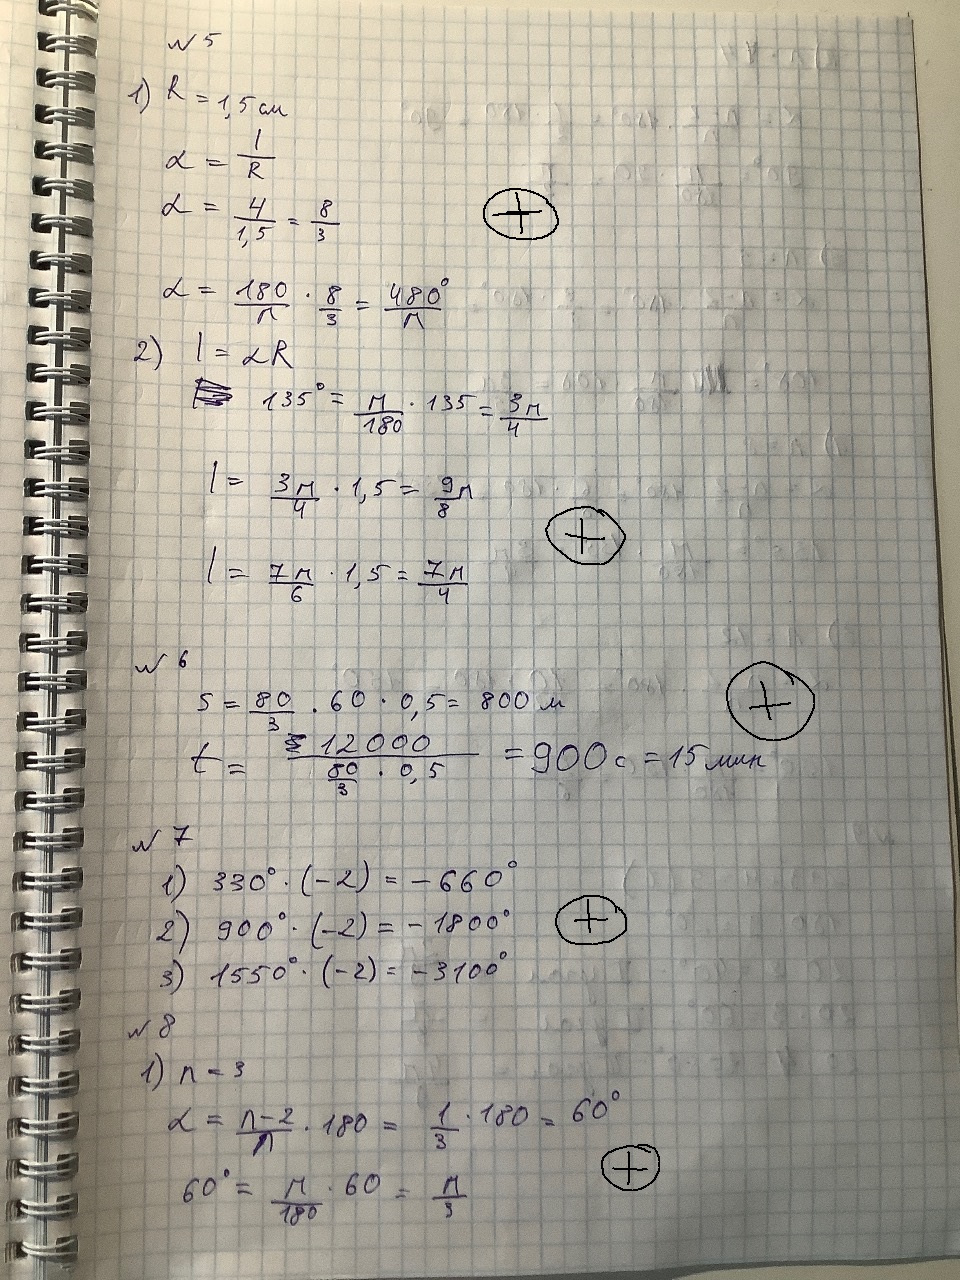 №5
1) R = 1,5 см
α = l/R
α = 4/1,5 = 8/3
α = 180/π · 8/3 = 480°/π
2) l = αR
135° = π/180 · 135 = 3π/4
l = 3π/4 · 1,5 = 9/8 π
l = 7π/6 · 1,5 = 7π/4
№6
S = 80/3 · 60 · 0,5 = 800 м
t = 12000/(80/3 · 0,5) = 900 с = 15 мин
№7
1) 330° · (-2) = -660°
2) 900° · (-2) = -1800°
3) 1550° · (-2) = -3100°
№8
1) n = 3
α = n-2/n · 180 = 1/3 · 180 = 60°
60° = π/180 · 60 = π/3